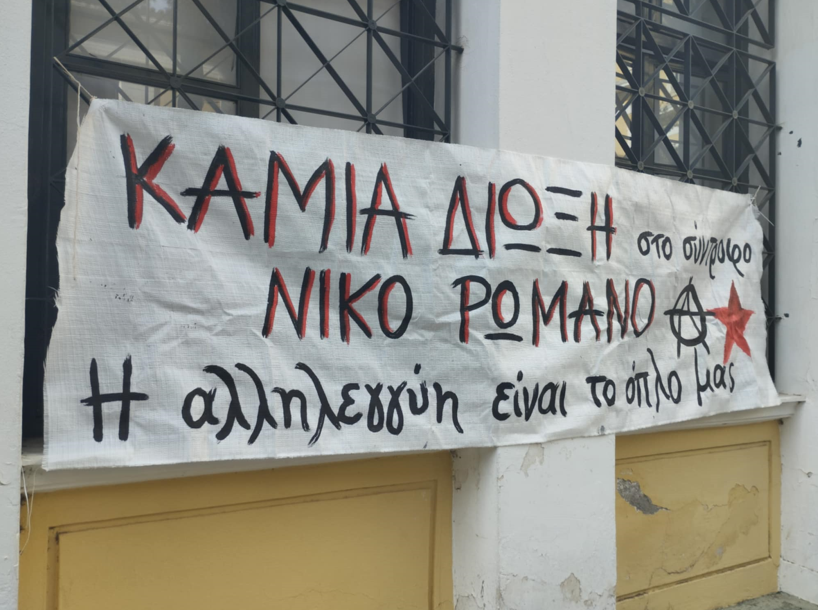 ΚΑΜΙΑ ΔΙΩΞΗ στο σύντροφο
ΝΙΚΟ ΡΩΜΑΝΟ Ⓐ★
Η αλληλεγγύη είναι το όπλο μας